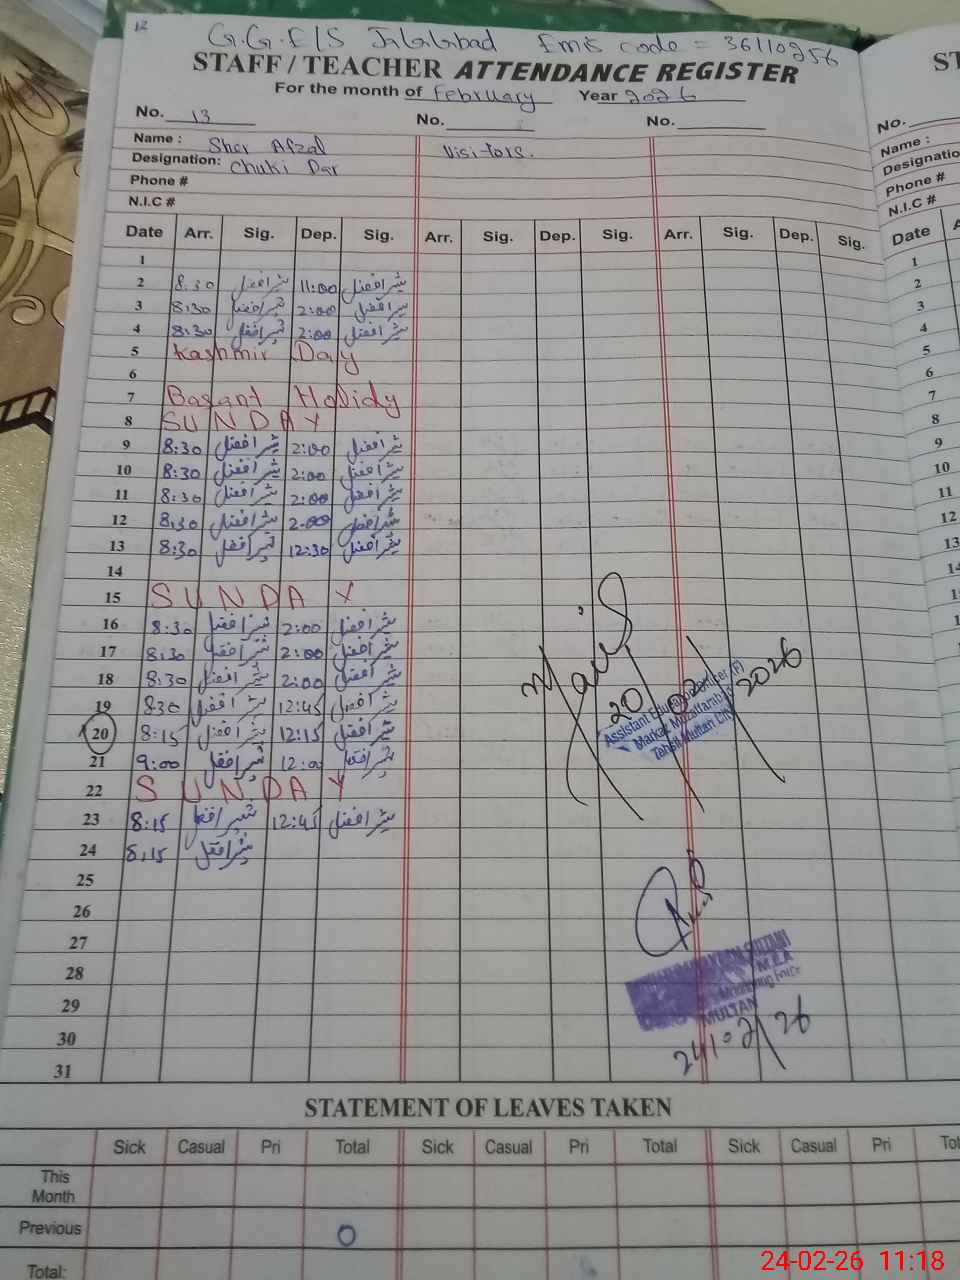 12
G.G.E/S Jalalabad Emis code = 36110256
STAFF / TEACHER ATTENDANCE REGISTER
For the month of February Year 2026
No. 13 No. No.
Name : Sher Afzal Visitors.
Designation: Chuki Dar
Phone #
N.I.C #
Date Arr. Sig. Dep. Sig. Arr. Sig. Dep. Sig. Arr. Sig. Dep. Sig.
1
2 8:30 شیرافضل 11:00 شیرافضل
3 8:30 شیرافضل 2:00 شیرافضل
4 8:30 شیرافضل 2:00 شیرافضل
5 Kashmir Day
6
7 Basant Holidy
8 SUNDAY
9 8:30 شیرافضل 2:00 شیرافضل
10 8:30 شیرافضل 2:00 شیرافضل
11 8:30 شیرافضل 2:00 شیرافضل
12 8:30 شیرافضل 2:00 شیرافضل
13 8:30 شیرافضل 12:30 شیرافضل
14
15 SUNDAY
16 8:30 شیرافضل 2:00 شیرافضل
17 8:30 شیرافضل 2:00 شیرافضل
18 8:30 شیرافضل 2:00 شیرافضل
19 830 شیرافضل 12:45 شیرافضل
20 8:15 شیرافضل 12:15 شیرافضل
21 9:00 شیرافضل 12:0 شیرافضل
22 SUNDAY
23 8:15 شیرافضل 12:45 شیرافضل
24 8:15 شیرافضل
25
26
27
28
29
30
31
20/02/2026
Assistant Education Officer (F)
Markaz Muzaffarabad
Tehsil Multan City
M.E.A
Monitoring Force
MULTAN
24/02/26
STATEMENT OF LEAVES TAKEN
Sick Casual Pri Total Sick Casual Pri Total Sick Casual Pri Tot
This Month
Previous 0
Total:
ST
No.
Name :
Designatio
Phone #
N.I.C #
Date A
1
2
3
4
5
6
7
8
9
10
11
12
13
14
15
24-02-26 11:18